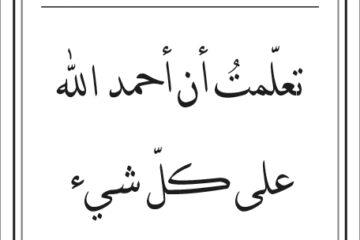 تعلّمتُ أن أحمد الله
على كلّ شيء